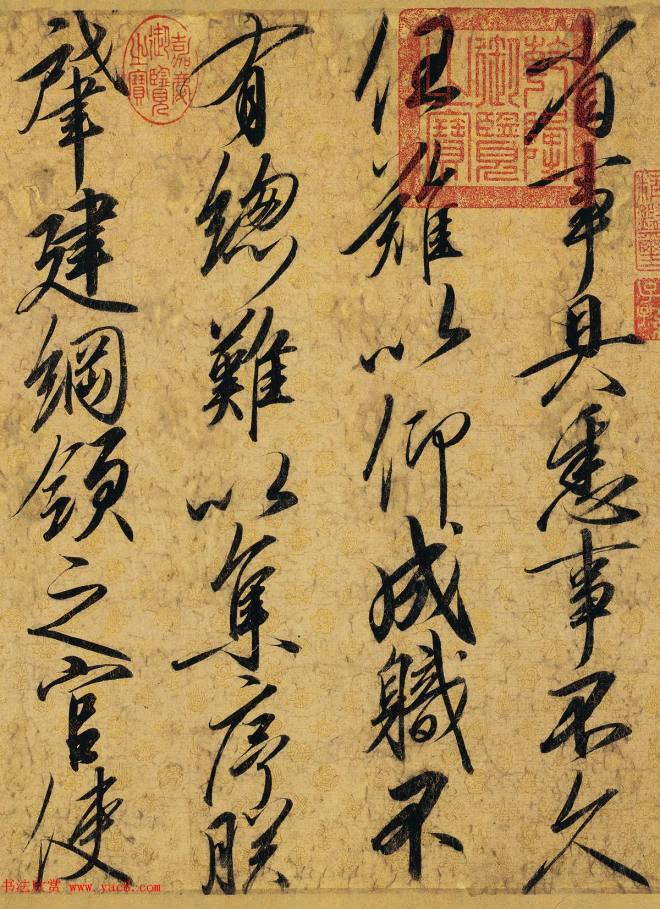 省事具悉事不久
任難以仰成職不
有總難以集序朕
肇建綱領之官使
乾隆御覽之寶
嘉慶御覽之寶
书法欣赏 www.yac8.com